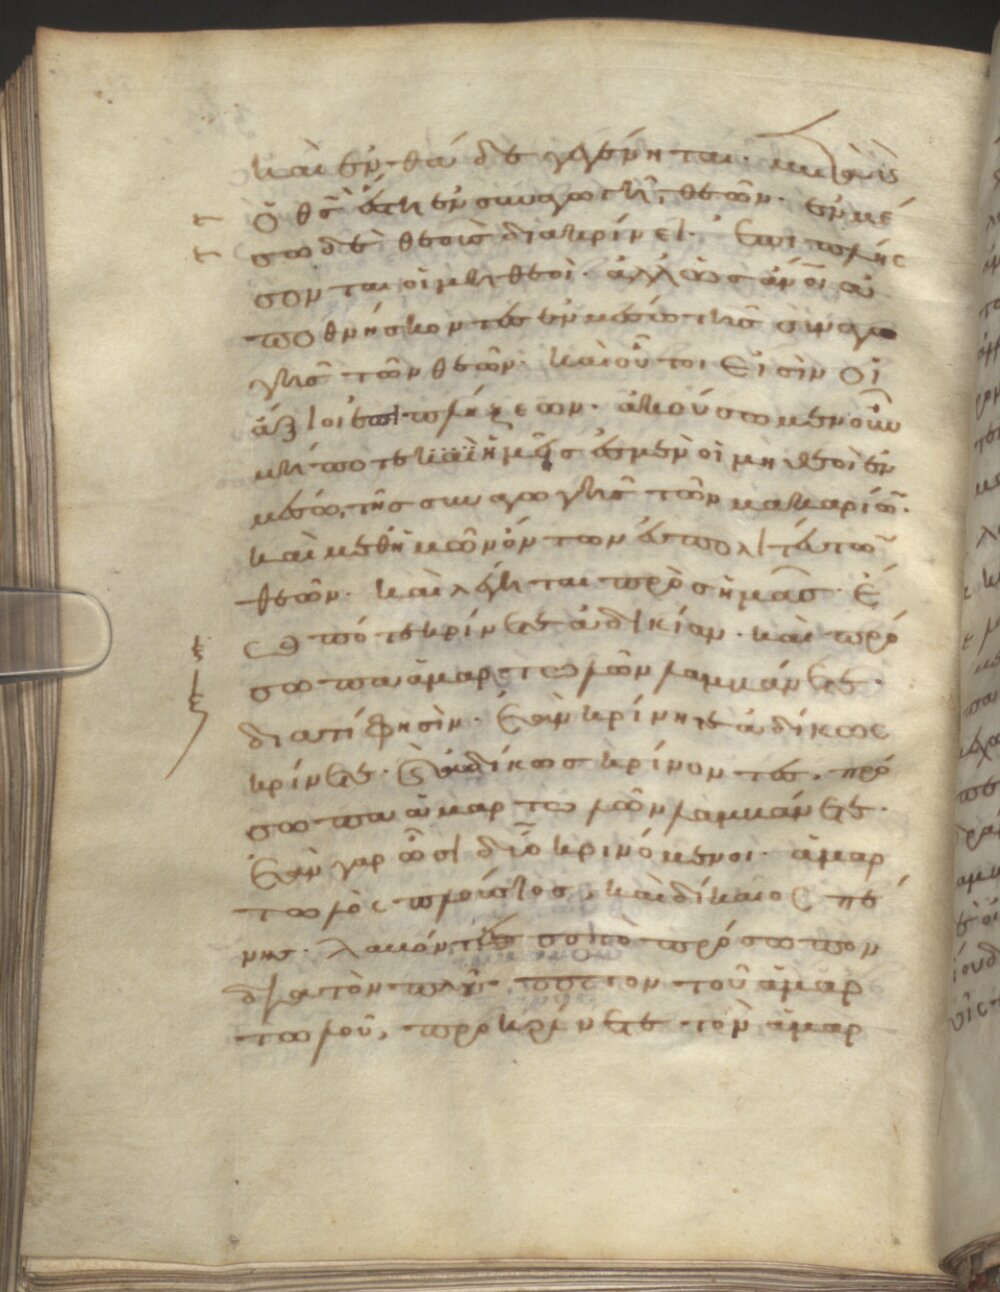 καὶ ἐνθάδε γένηται. καὶ
ὁ θς ἔστη ἐν συναγωγῆ θεῶν. ἐν μέ
σω δὲ θεοὺς διακρίνει. ἐπιπλής
σονται οἱ μὴ θεοὶ. ἀλλ' ὡς ἄνοι ἀ
ποθνήσκοντες ἐν μέσω τῆς συναγω
γῆς τῶν θεῶν. καὶ οὗτοι εἰσὶν οἱ
ἄξιοι ἐπιπλήξεων. ἀκούσωμεν οὖν
μή ποτε καὶ ἡμᾶς ἐσμὲν οἱ μὴ θεοὶ ἐν
μέσω τῆς συναγωγῆς τῶν μακαρίων.
καὶ μεθ' ἡμῶν ὄντων
θεῶν. καὶ λέγηται πρὸς ἡμᾶς. ἕ
ως πότε κρίνετε ἀδικίαν. καὶ πρό
σωπα ἁμαρτωλῶν λαμβάνετε.
διατί φησίν. ἐὰν κρίνητε ἀδίκως
κρίνετε. ἀδίκως κρίνοντες, πρό
σωπα ἁμαρτωλῶν λαμβάνετε.
ἐὰν γὰρ ὦσι δύο κρινόμενοι. ἁμαρ
τωλὸς πλούσιος, καὶ δίκαιος πέ
νης. λαβόντες πρόσωπον
διὰ τὸν πλοῦτον τοῦ ἁμαρ
τωλοῦ, προκρίνετε τὸν ἁμαρ